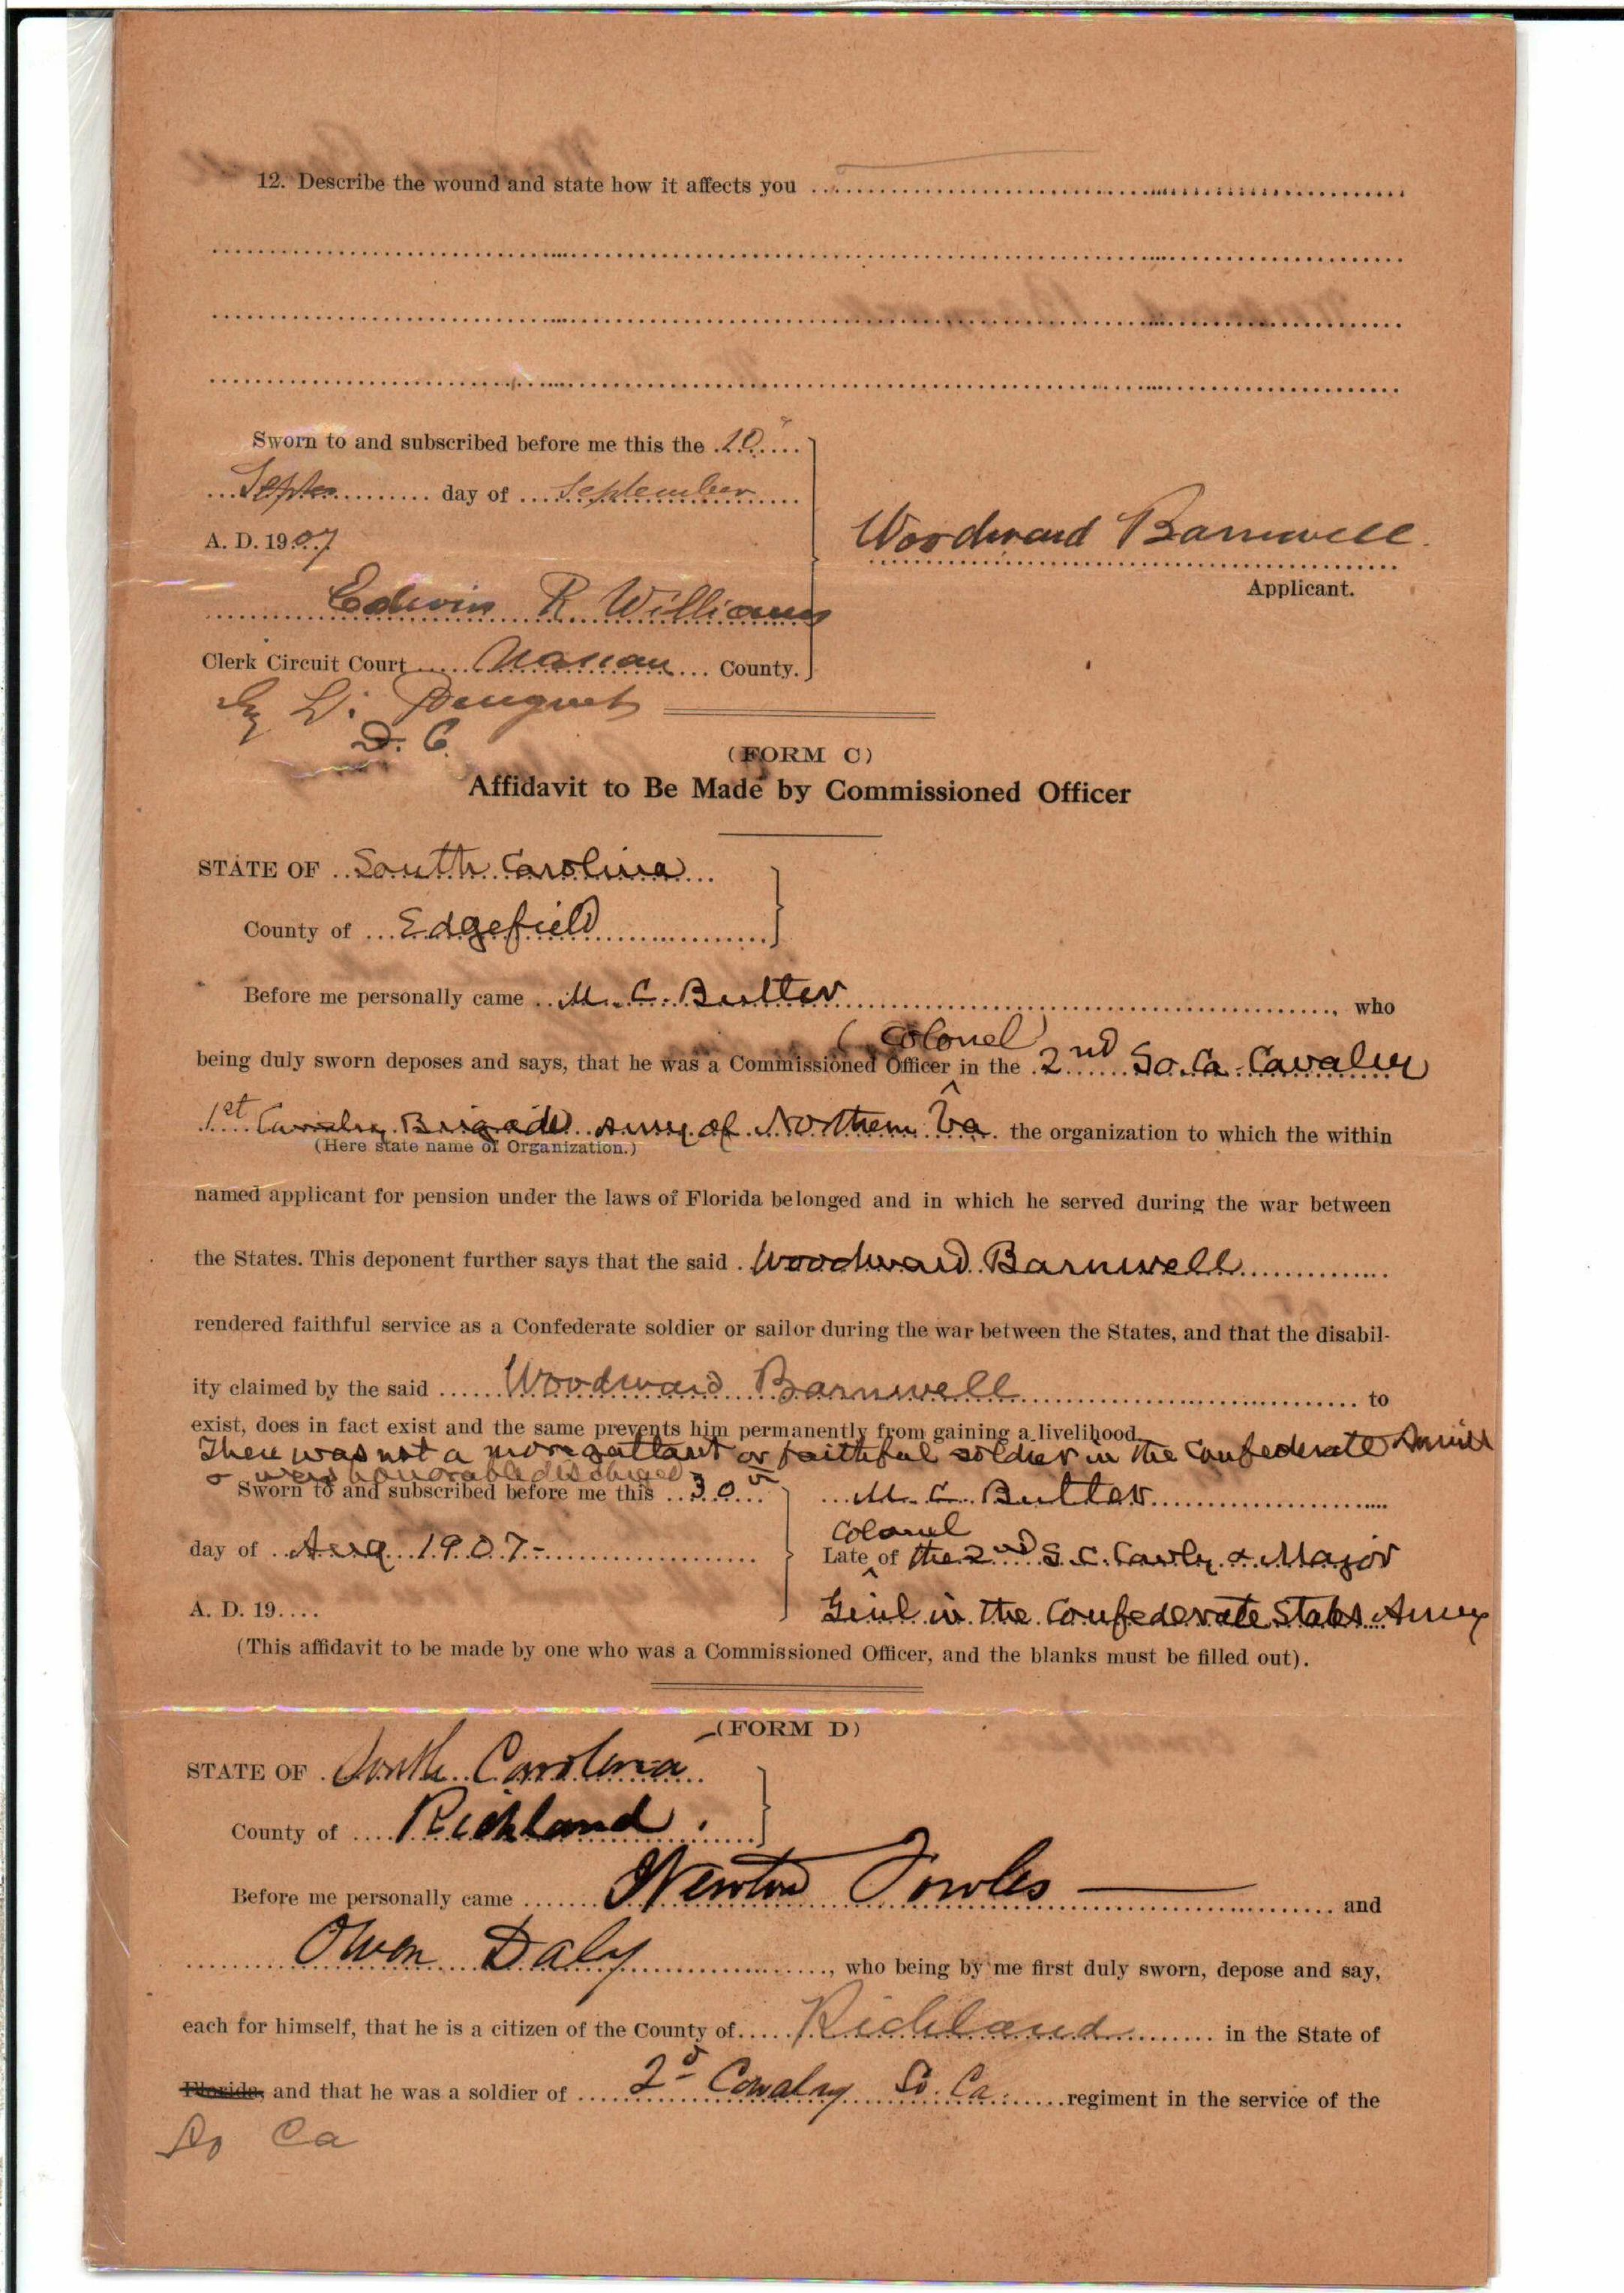 12. Describe the wound and state how it affects you
Sworn to and subscribed before me this the 10"
Septer day of September
A. D. 1907
Woodward Barnwell.
Applicant.
Edwin R Williams
Clerk Circuit Court Nassau County.
By L.
D. C.
(FORM C)
Affidavit to Be Made by Commissioned Officer
STATE OF South Carolina
County of Edgefield
Before me personally came M. C. Butler, who
(Colonel)
being duly sworn deposes and says, that he was a Commissioned Officer in the 2nd So. Ca. Cavalry
1st Cavalry Brigade Army of Northern Va the organization to which the within
(Here state name of Organization.)
named applicant for pension under the laws of Florida belonged and in which he served during the war between
the States. This deponent further says that the said Woodward Barnwell
rendered faithful service as a Confederate soldier or sailor during the war between the States, and that the disabil-
ity claimed by the said Woodward Barnwell to
exist, does in fact exist and the same prevents him permanently from gaining a livelihood
There was not a more gallant or faithful soldier in the Confederate
honorable discharged
Sworn to and subscribed before me this 30
M. C. Butler
day of Aug 1907-
Colonel
Late of the 2nd S. C. Cavly. & Major
A. D. 19....
Genl in the Confederate States Army
(This affidavit to be made by one who was a Commissioned Officer, and the blanks must be filled out).
(FORM D)
STATE OF South Carolina
County of Richland.
Before me personally came Newton Fowles and
Owen Daly, who being by me first duly sworn, depose and say,
each for himself, that he is a citizen of the County of Richland in the State of
Florida, and that he was a soldier of 2d Cavalry So. Ca. regiment in the service of the
So Ca